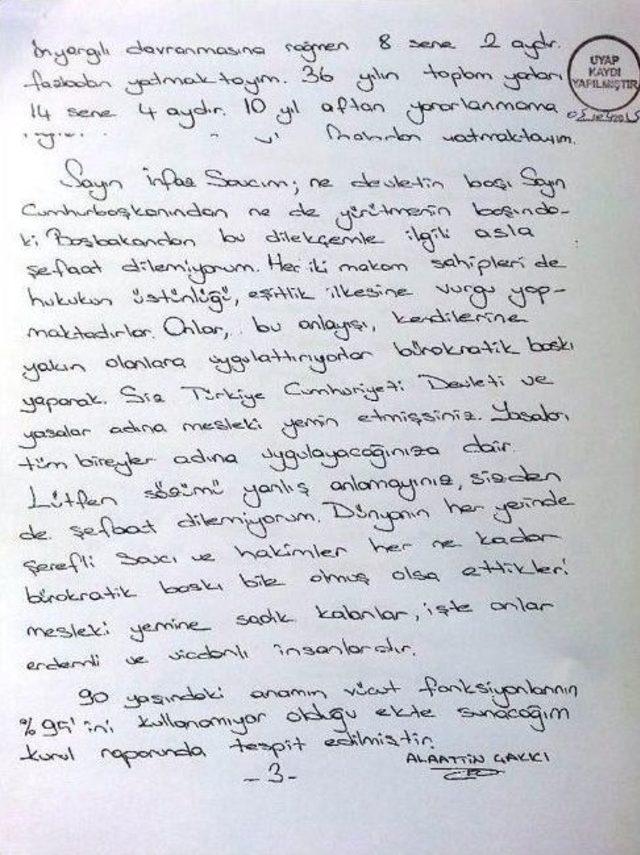 önyargılı davranmasına rağmen 8 sene 2 aydır.
fazladan yatmaktayım. 36 yılın toplam yatarı
14 sene 4 aydır. 10 yıl aftan yararlanmama
yatmaktayım.
UYAP
KAYDI
YAPILMIŞTIR
Sayın İnfaz Savcım; ne devletin başı Sayın
Cumhurbaşkanından ne de yürütmenin başında-
ki Başbakandan bu dilekçemle ilgili asla
şefaat dilemiyorum. Her iki makam sahipleri de
hukukun üstünlüğü, eşitlik ilkesine vurgu yap-
maktadırlar. Onlar, bu anlayışı, kendilerine
yakın olanlara uygulattırıyorlar bürokratik baskı
yaparak. Siz Türkiye Cumhuriyeti Devleti ve
yasalar adına mesleki yemin etmişsiniz. Yasaları
tüm bireyler adına uygulayacağınıza dair.
Lütfen sözümü yanlış anlamayınız, sizden
de şefaat dilemiyorum. Dünyanın her yerinde
şerefli savcı ve hakimler her ne kadar
bürokratik baskı bile olmuş olsa ettikleri
mesleki yemine sadık kalanlar, işte onlar
erdemli ve vicdanlı insanlardır.
90 yaşındaki anamın vücut fonksiyonlarının
%95'ini kullanamıyor olduğu ekte sunacağım
kurul raporunda tespit edilmiştir.
ALAATTİN ÇAKICI
-3-